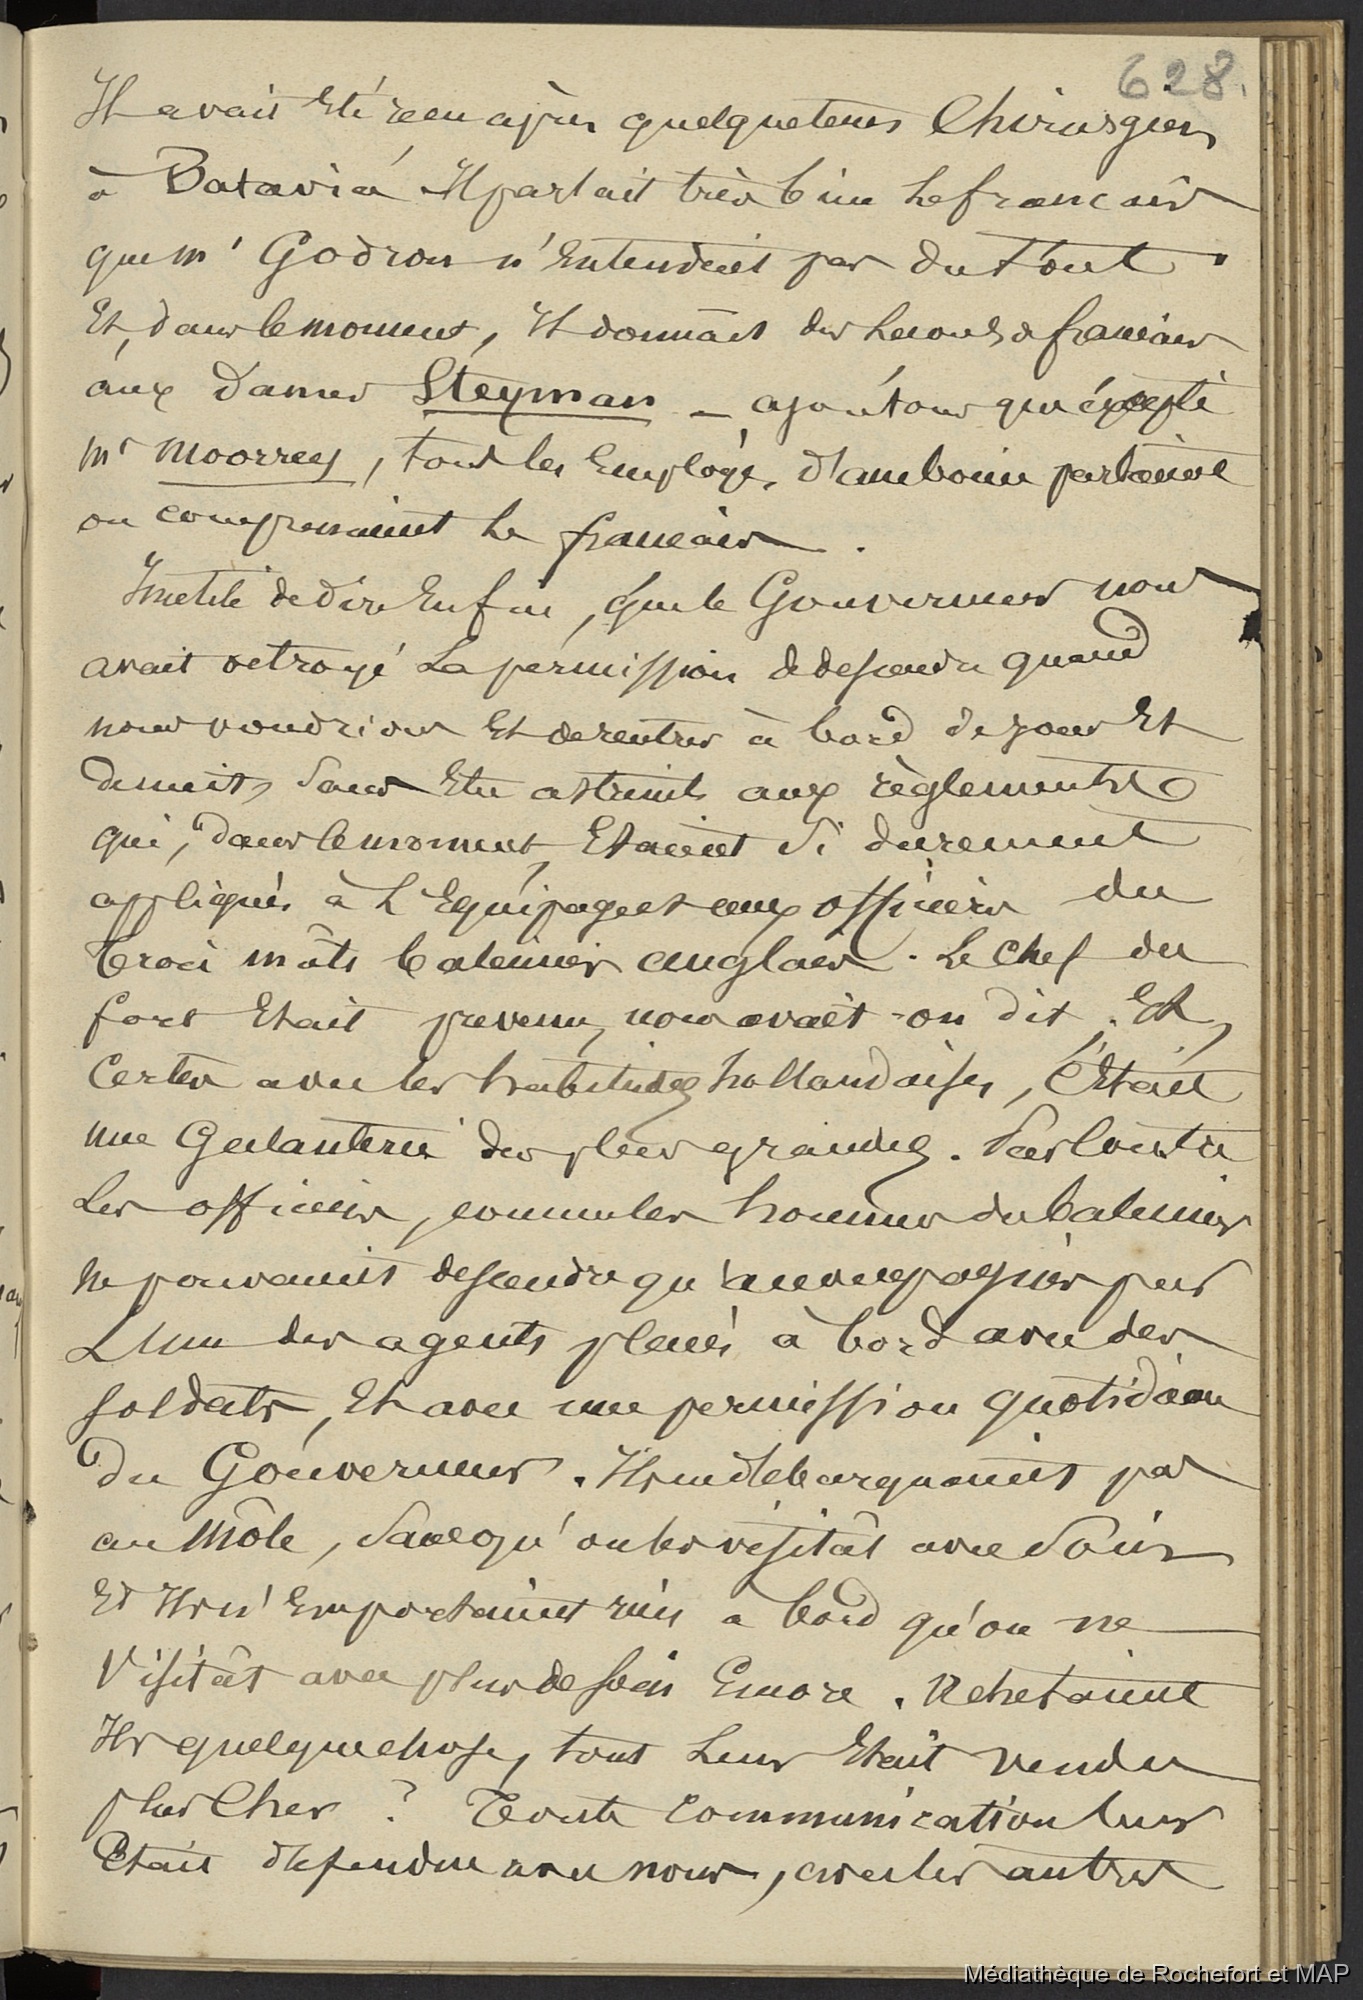 628.
Il avait été recu après quelquetems Chirurgien
à Batavia. Il parlait très bien Le francais
que mr Godron n'Entendait pas du tout.
Et, dans le moment, Il donnait des Lecons de francais
aux dames Steyman _ ajoutons qu'éxcepté
mr moorrees, tous les Employés d'amboine parlaient
ou comprenaient Le francais.
Inutile de dire Enfin, que le Gouverneur nous
avait octroyé La permission de descendre quand
nous voudrions Et de rentrer à bord de jour Et
de nuit, Sans Etre astreints aux règlements
qui, dans le moment, Etaient Si durement
appliqués à L'Equipage et aux officiers du
trois mâts baleinier anglais. Le Chef du
fort Etait prevenu, nous avait-on dit. Et,
Certes avec les habitudes hollandaises, C'Etait
une Galanterie des plus grandes. Par Contre
Les officiers, comme les hommes du baleinier
ne pouvaient descendre qu'accompagnés par
L'un des agents placés à bord avec des
soldats, Et avec une permission quotidienne
du Gouverneur. Ils ne debarquaient pas
au Môle, Sans qu'on les visitât avec Soin
Et Ils n'Emportaient rien à bord qu'on ne
Visitât avec plus de soin Encore. Achetaient
Ils quelque chose, tout Leur Etait vendu
plus Cher ? Toute Communication leur
Etait défendue avec nous, avec les autres
Médiathèque de Rochefort et MAP